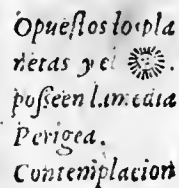 Opuestos los pla
netas y el
posseen la media
Perigea.
Contemplacion